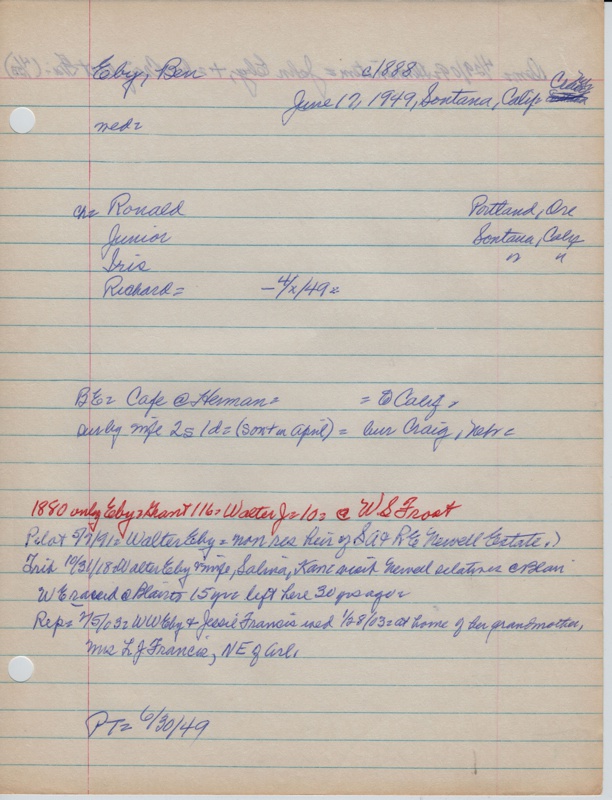 Eby, Ben c1888
June 17, 1949, Sontana, Calif=
med=
ch= Ronald Portland, Ore
Junior Sontana, Calif
Iris " "
Richard= -4/x/49=
BE= Cafe @ Herman= = to Calif=
sur by wife 2s 1d= (son + in April) = bur Craig, Nebr=
1880 only Eby= Grant 116= Walter J= 10= @ W S Frost
Pilot 5/7/91= Walter Eby= non res heir of S A & R E Newell Estate.)
Trib 10/31/18= Walter Eby & wife, Salina, Kans visit Newell relatives @ Blair
W E raised @ Blair to 15 yr= left here 30 yrs ago=
Rep= 2/5/03= W W Eby & Jessie Francis wed 1/28/03= at home of her grandmother,
Mrs L J Francis, NE of Arl.
PT= 6/30/49